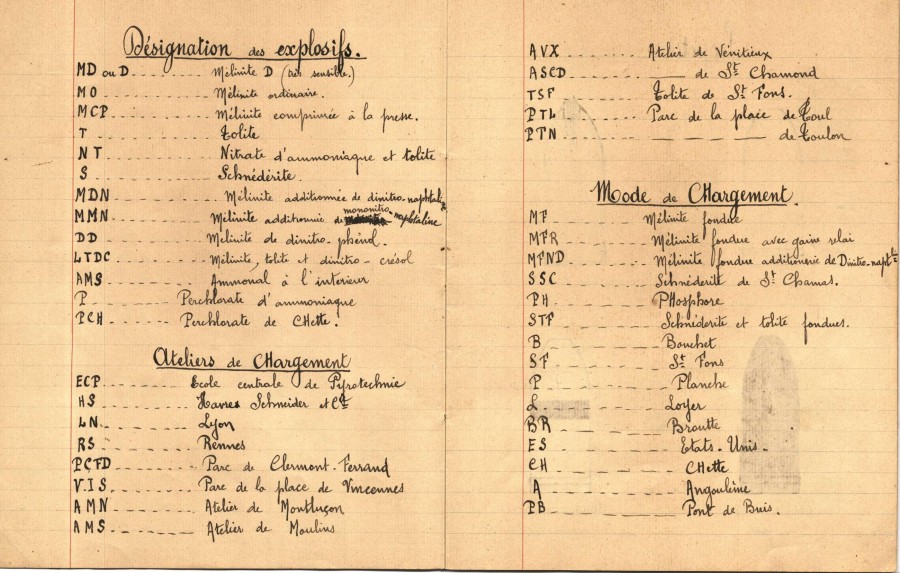 Désignation des explosifs.
MD ou D ........ Mélinite D (très sensible.)
MO ........ Mélinite ordinaire.
MCP ........ Mélinite comprimée à la presse.
T ........ Tolite
NT ........ Nitrate d'ammoniaque et tolite
S ........ Schnédérite.
MDN ........ Mélinite additionnée de dinitro-naphtali
MMN ........ Mélinite additionnée de mononitro-naphtaline
DD ........ Mélinite de dinitro-phénol.
LTDC ........ Mélinite, tolite et dinitro-crésol
AMS ........ Ammonal à l'intérieur
P ........ Perchlorate d'ammoniaque
PCH ........ Perchlorate de CHette.
Ateliers de CHargement
ECP ........ Ecole centrale de Pyrotechnie
HS ........ Havres Schneider et Cie
LN ........ Lyon
RS ........ Rennes
PCFD ........ Parc de Clermont-Ferrand
V.I.S. ........ Parc de la place de Vincennes
AMN ........ Atelier de Montluçon
AMS ........ Atelier de Moulins
AVX ........ Atelier de Vénitieux
ASCD ........ —— de St Chamond
TSF ........ Tolite de St Fons.
PTL ........ Parc de la place de Toul
PTN ........ —— de Toulon
Mode de CHargement
MF ........ Mélinite fondue
MFR ........ Mélinite fondue avec gaine relai
MFND ........ Mélinite fondue additionnée de Dinitro-naphte
SSC ........ Schnéderite de St Chamas.
PH ........ PHosphore
STF ........ Schnéderite et tolite fondues.
B ........ Bouchet
SF ........ St Fons
P ........ Planche
L ........ Loyer
BR ........ Broutte
ES ........ Etats-Unis
CH ........ CHette
A ........ Angoulème
PB ........ Pont de Buis.